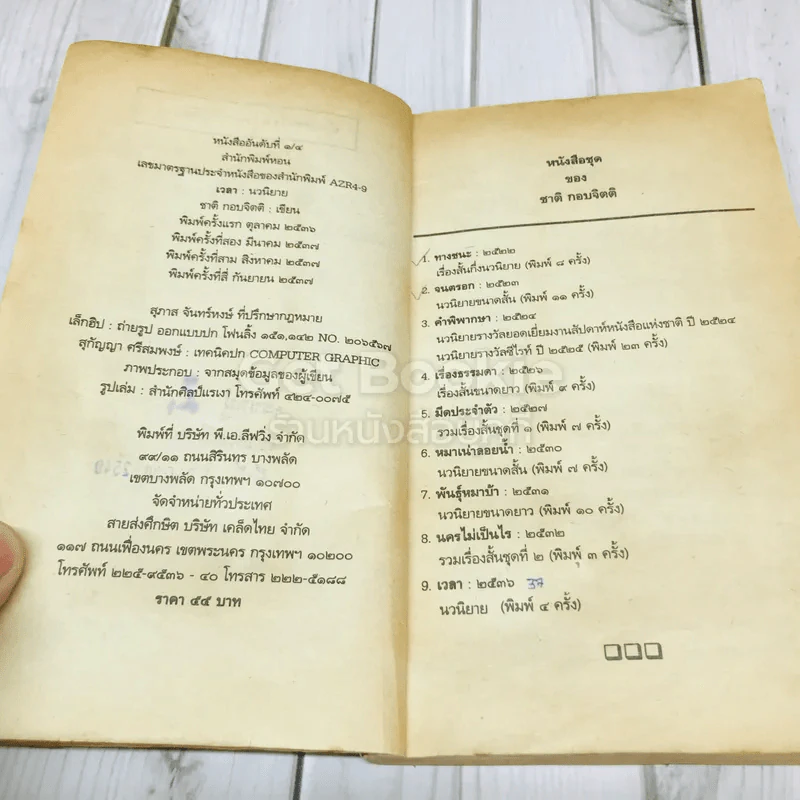 หนังสืออันดับที่ ๑/๔
สำนักพิมพ์หอน
เลขมาตรฐานประจำหนังสือของสำนักพิมพ์ AZR4-9
เวลา : นวนิยาย
ชาติ กอบจิตติ : เขียน
พิมพ์ครั้งแรก ตุลาคม ๒๕๓๖
พิมพ์ครั้งที่สอง มีนาคม ๒๕๓๗
พิมพ์ครั้งที่สาม สิงหาคม ๒๕๓๗
พิมพ์ครั้งที่สี่ กันยายน ๒๕๓๗
สุภาส จันทร์หงษ์ ที่ปรึกษากฎหมาย
เล็กฮิป : ถ่ายรูป ออกแบบปก โฟนลิ้ง ๑๕๑,๑๔๒ NO. ๒๐๖๕๖๗
สุกัญญา ศรีสมพงษ์ : เทคนิคปก COMPUTER GRAPHIC
ภาพประกอบ : จากสมุดข้อมูลของผู้เขียน
รูปเล่ม : สำนักศิลป์แรเงา โทรศัพท์ ๔๒๔-๐๐๗๕
พิมพ์ที่ บริษัท พี.เอ.ลีฟวิ่ง จำกัด
๙๙/๑๑ ถนนสิรินทร บางพลัด
เขตบางพลัด กรุงเทพฯ ๑๐๗๐๐
จัดจำหน่ายทั่วประเทศ
สายส่งศึกษิต บริษัท เคล็ดไทย จำกัด
๑๑๗ ถนนเฟื่องนคร เขตพระนคร กรุงเทพฯ ๑๐๒๐๐
โทรศัพท์ ๒๒๕-๙๕๓๖ - ๔๐ โทรสาร ๒๒๒-๕๑๘๘
ราคา ๕๕ บาท
หนังสือชุด
ของ
ชาติ กอบจิตติ
1. ทางชนะ : ๒๕๒๒
เรื่องสั้นกึ่งนวนิยาย (พิมพ์ ๘ ครั้ง)
2. จนตรอก : ๒๕๒๓
นวนิยายขนาดสั้น (พิมพ์ ๑๑ ครั้ง)
3. คำพิพากษา : ๒๕๒๔
นวนิยายรางวัลยอดเยี่ยมงานสัปดาห์หนังสือแห่งชาติ ปี ๒๕๒๔
นวนิยายรางวัลซีไรท์ ปี ๒๕๒๕ (พิมพ์ ๒๓ ครั้ง)
4. เรื่องธรรมดา : ๒๕๒๖
เรื่องสั้นขนาดยาว (พิมพ์ ๙ ครั้ง)
5. มีดประจำตัว : ๒๕๒๗
รวมเรื่องสั้นชุดที่ ๑ (พิมพ์ ๗ ครั้ง)
6. หมาเน่าลอยน้ำ : ๒๕๓๐
นวนิยายขนาดสั้น (พิมพ์ ๗ ครั้ง)
7. พันธุ์หมาบ้า : ๒๕๓๑
นวนิยายขนาดยาว (พิมพ์ ๑๐ ครั้ง)
8. นครไม่เป็นไร : ๒๕๓๒
รวมเรื่องสั้นชุดที่ ๒ (พิมพ์ ๓ ครั้ง)
9. เวลา : ๒๕๓๖ 37
นวนิยาย (พิมพ์ ๔ ครั้ง)